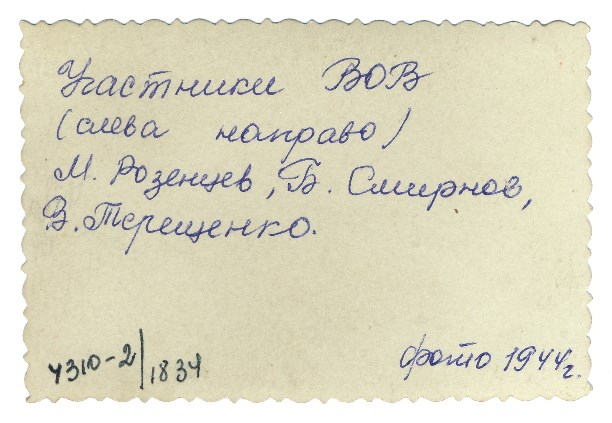 Участники ВОВ
(слева направо)
М. Розенцев, Б. Смирнов,
В. Терещенко.
4310-2/1834
фото 1944 г.